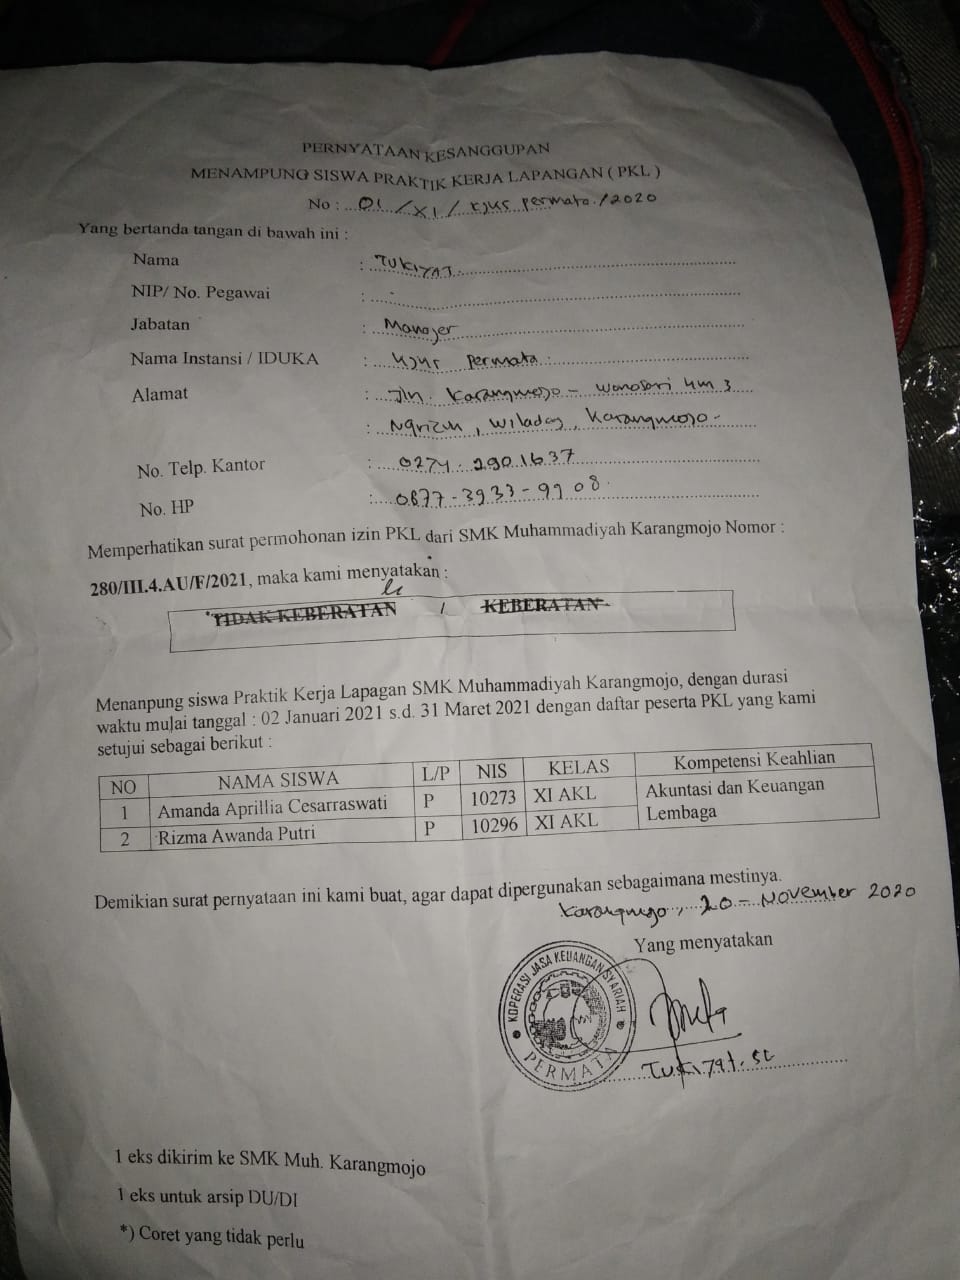 PERNYATAAN KESANGGUPAN
MENAMPUNG SISWA PRAKTIK KERJA LAPANGAN ( PKL )
No : 01 / XI / KJKS Permata / 2020
Yang bertanda tangan di bawah ini :
Nama : TUKIYAT
NIP/ No. Pegawai : -
Jabatan : Manajer
Nama Instansi / IDUKA : KJKS Permata
Alamat : Jln. Karangmojo - Wonosari Km 3
: , Wiladeg, Karangmojo -
No. Telp. Kantor : 0274. 2901637
No. HP : 0877-3933-9908
Memperhatikan surat permohonan izin PKL dari SMK Muhammadiyah Karangmojo Nomor :
280/III.4.AU/F/2021, maka kami menyatakan :
*TIDAK KEBERATAN / KEBERATAN
Menanpung siswa Praktik Kerja Lapagan SMK Muhammadiyah Karangmojo, dengan durasi
waktu mulai tanggal : 02 Januari 2021 s.d. 31 Maret 2021 dengan daftar peserta PKL yang kami
setujui sebagai berikut :
NO NAMA SISWA L/P NIS KELAS Kompetensi Keahlian
1 Amanda Aprillia Cesarraswati P 10273 XI AKL Akuntasi dan Keuangan
2 Rizma Awanda Putri P 10296 XI AKL Lembaga
Demikian surat pernyataan ini kami buat, agar dapat dipergunakan sebagaimana mestinya.
Karangmojo, 20 - November 2020
Yang menyatakan
KOPERASI JASA KEUANGAN SYARIAH
PERMATA
Tukiyat. SE
1 eks dikirim ke SMK Muh. Karangmojo
1 eks untuk arsip DU/DI
*) Coret yang tidak perlu